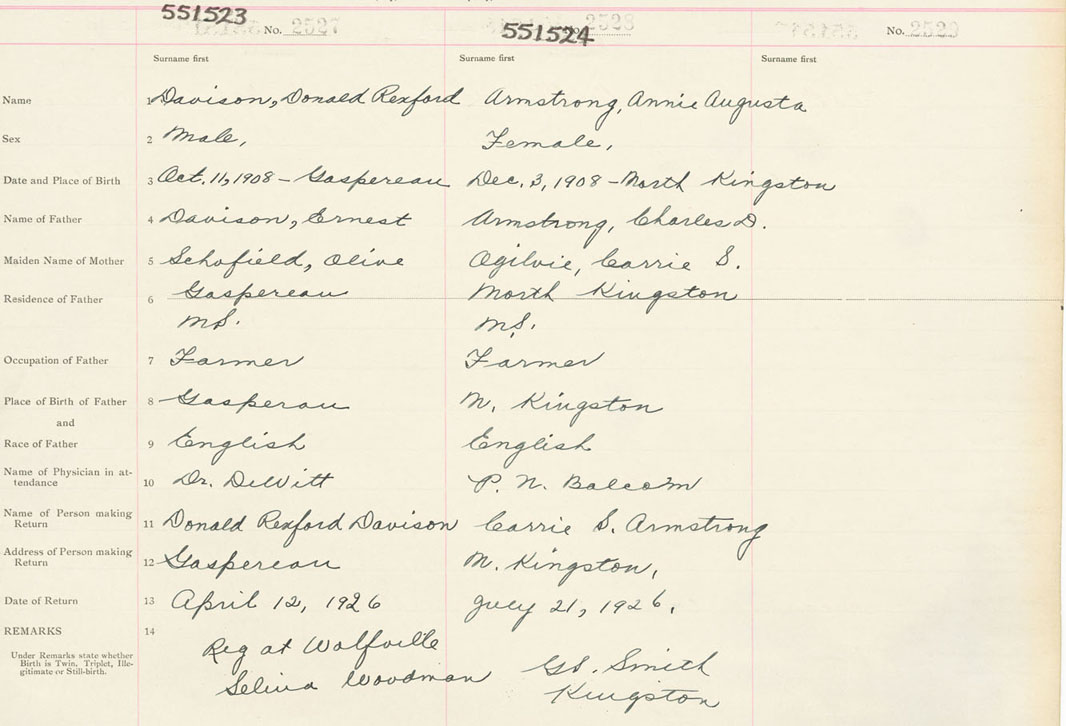 551523
No. 2527
551524
No. 2528
No. 2529
Surname first
Surname first
Surname first
Name
1 Davison, Donald Rexford
Armstrong, Annie Augusta
Sex
2 Male,
Female,
Date and Place of Birth
3 Oct. 11, 1908 - Gaspereau
Dec. 3, 1908 - North Kingston
Name of Father
4 Davison, Ernest
Armstrong, Charles D.
Maiden Name of Mother
5 Schofield, Olive
Ogilvie, Carrie S.
Residence of Father
6 Gaspereau
North Kingston
N.S.
N.S.
Occupation of Father
7 Farmer
Farmer
Place of Birth of Father
8 Gasperau
N. Kingston
and
Race of Father
9 English
English
Name of Physician in at-
tendance
10 Dr. DeWitt
P. N. Balcom
Name of Person making
Return
11 Donald Rexford Davison
Carrie S. Armstrong
Address of Person making
Return
12 Gaspereau
N. Kingston,
Date of Return
13 April 12, 1926
July 21, 1926.
REMARKS
14
Under Remarks state whether
Birth is Twin, Triplet, Ille-
gitimate or Still-birth.
Reg at Wolfville
Selina Woodman
Smith
Kingston